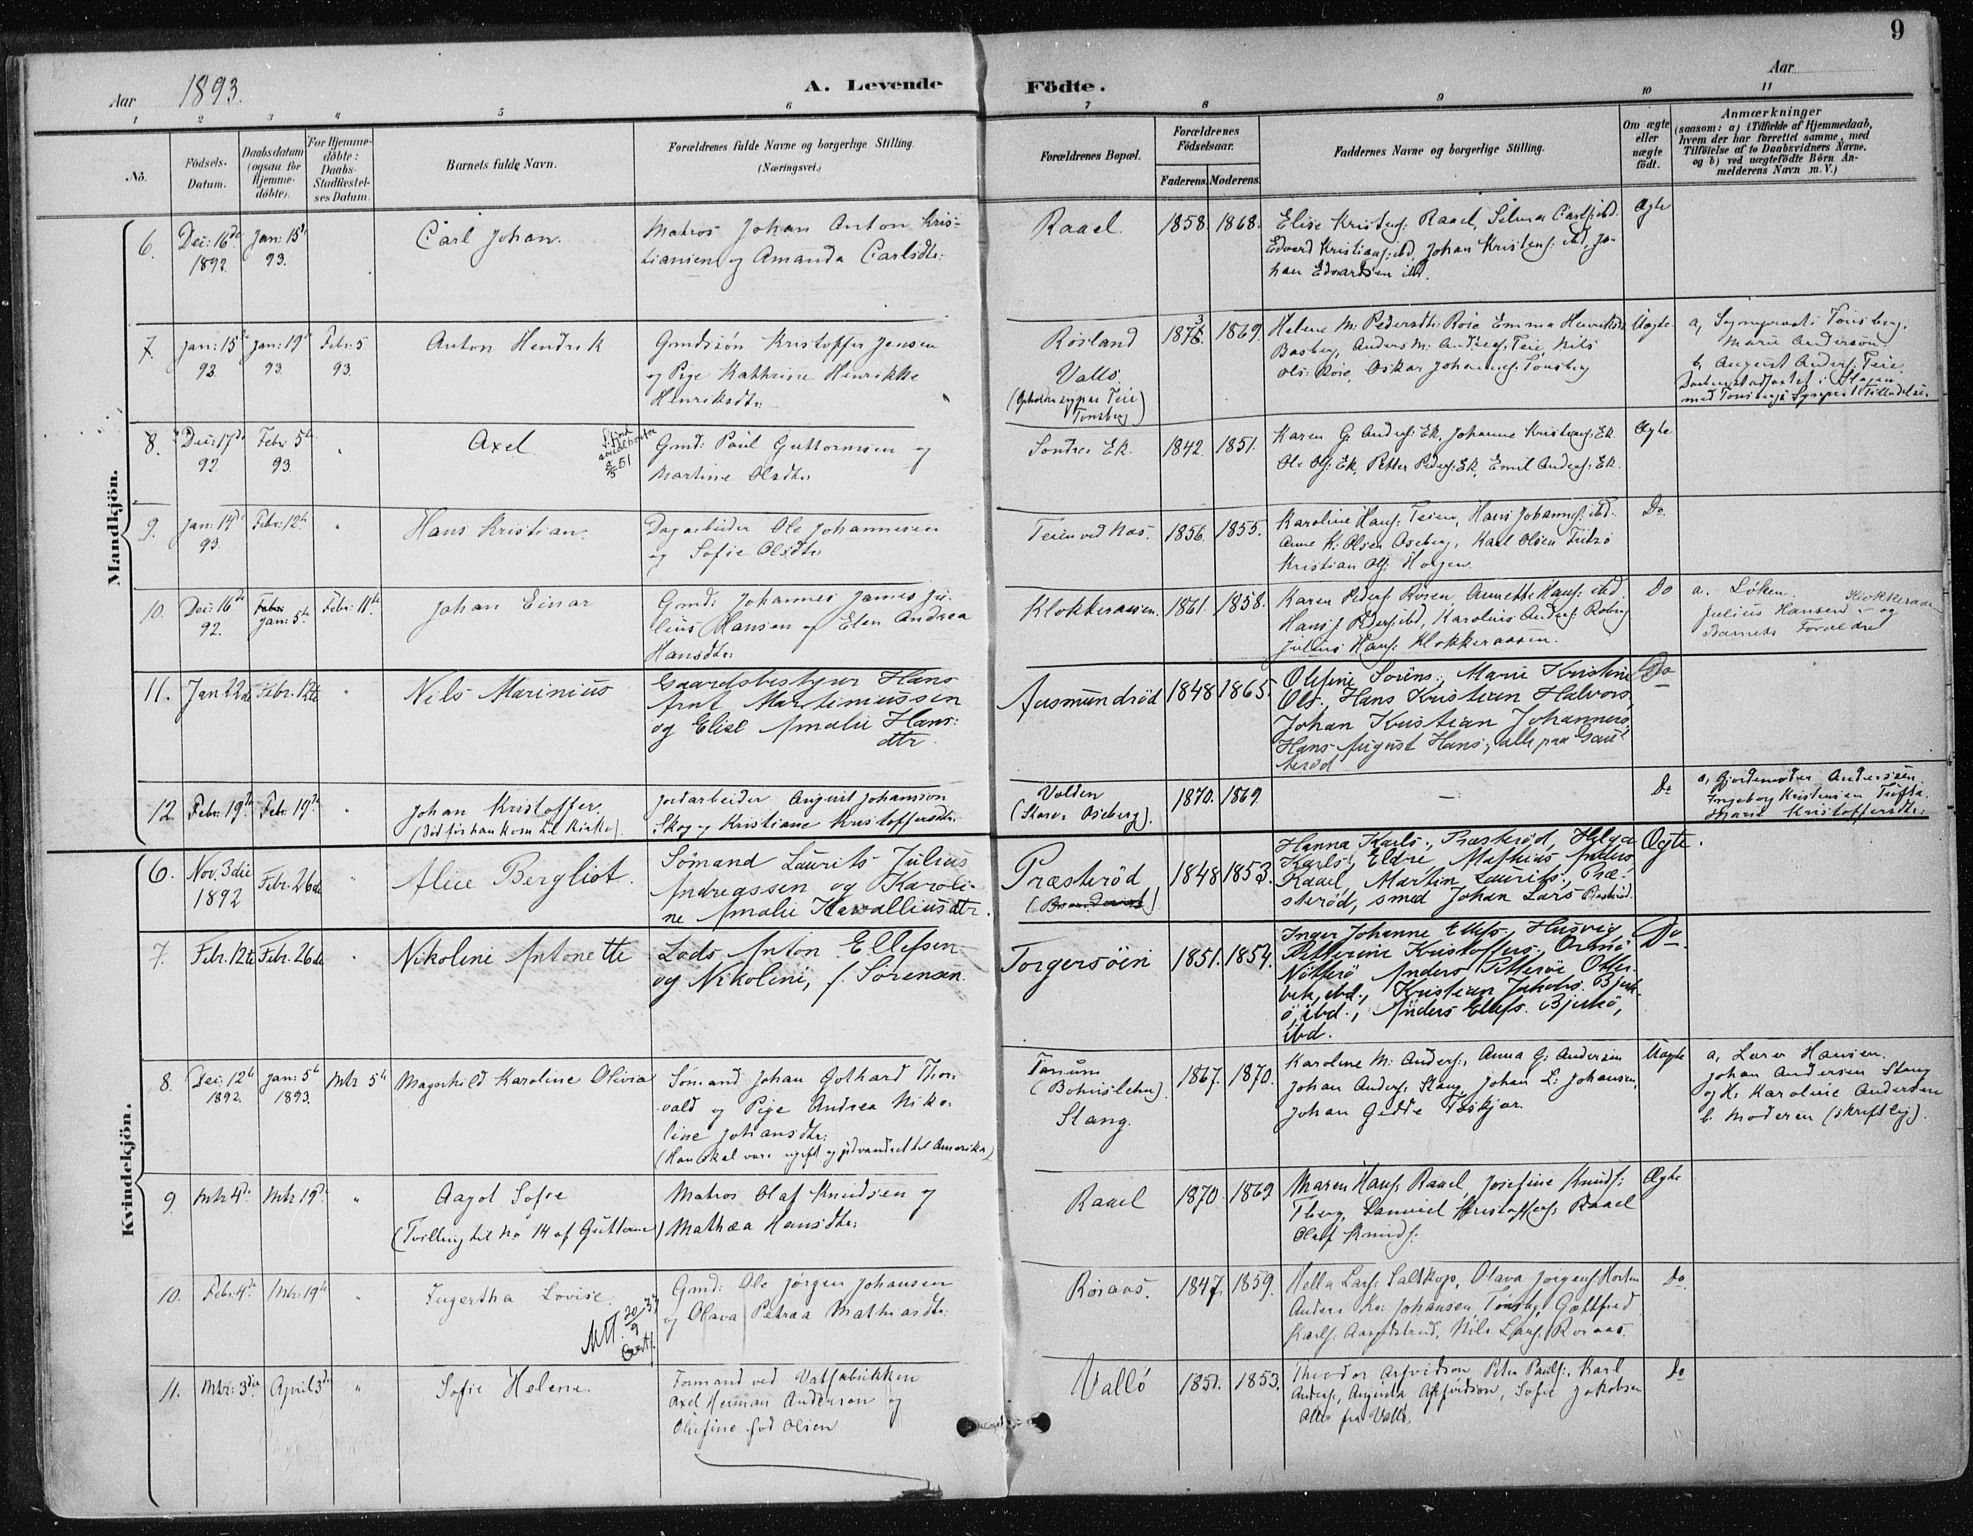 9
Aar 1893.
A. Levende
Födte.
Aar
1 2 3 4 5 6 7 8 9 10 11
No.
Födsels-
Datum.
Daabsdatum
(ogsaa för
Hjemme-
döbte).
For Hjemme-
döbte:
Daabs-
Stadfæstel-
ses Datum.
Barnets fulde Navn.
Forældrenes fulde Navne og borgerlige Stilling.
(Næringsvei.)
Forældrenes Bopæl.
Forældrenes
Födselsaar.
Faderens. Moderens.
Faddernes Navne og borgerlige Stilling.
Om ægte
eller
uægte
födt.
Anmærkninger
(saasom: a) i Tilfælde af Hjemmedaab,
hvem der har forrettet samme, med
Tilföielse af to Daabsvidners Navne,
og b) ved uægtefödte Börn An-
melderens Navn m. V.)
Mandkjön.
6.
Dec: 16de
1892.
Jan: 15de
93.
Carl Johan.
Matros Johan Anton Kris-
tiansen og Amanda Carlsdtr:
Raael.
1858. 1868.
Elise Kristens: Raael, Selma Carls: ibd.
Edvard Kristians: ibd, Johan Kristens: ibd, Jo-
han Edvardsen ibd.
Ægte
7.
Jan: 15de
93.
Jan: 19de
93.
Febr: 5
93.
Anton Hendrik
Gmdsön Kristoffer Jensen
og Pige Kathrine Henrikke
Henriksdtr:
Rosland
Vallö.
Teie
Tönsberg)
1873. 1869.
Helene M: Pedersdtr: Roie Emma Henriksdtr
Basberg, Anders M: Anders: Teie, Nils
Ols: Roie, Oskar Johannes: Tönsberg
Uægte
Tönsberg.
Marie Anderson.
b, August Anders: Teie.
8.
Dec: 17de
92
Febr: 5te
93.
"
Axel
51
Gmd: Paul Guttormsen og
Martine Olsdtr:
Söndre Ek.
1842. 1851.
Karen G: Anders: Ek, Johanne Kristens: Ek.
Ole Ols: Ek, Petter Peders: Ek, Emil Anders: Ek.
Ægte
9.
Jan: 14de
93.
Febr: 12te
"
Hans Kristian.
Dagarbeider Ole Johannesen
og Sofie Olsdtr:
Teien ved Nes.
1856. 1855.
Karoline Hans: Teien, Hans Johannes: ibd.
Anne K: Olsen Oseberg, Karl Olsen
Kristian Ols: Holgen
Do.
10.
Dec: 16de
92.
Febr:
Jan: 5te
Febr: 11te
Johan Einar
Gmd: Johannes James Ju-
lius Hansen og Elen Andrea
Hansdtr:
Klokkeraasen.
1861. 1858.
Karen Peders: Rosen, Annette Hans: ibd.
Hans J Peders: ibd, Karolius Anders: Roberg
Julius Hans: Klokkeraasen.
Do
a. Löken. Klokkeraasen
Julius Hansen og
Barnets Forældre
11.
Jan 22de
Febr. 12te
"
Nils Marinius
Gaardsbestyrer Hans
Arnt Martiniussen
og Elise Amalie Hans:
dtr.
Ausmundröd
1848 1865.
Olefine Sörens:, Marie Kristine
Ols:, Hans Kristian Halvors,
Johan Kristian Johannes,
Hans August Hans:, alle paa
Do
12.
Febr: 19de
Febr: 19de
"
Johan Kristoffer.
(Död för han kom til Kirke).
Jordarbeider August Johansson
Skog og Kristiane Kristoffersdtr:
Volden
(Store Oseberg).
1870. 1869.
—
Do
a, Gjordemoder Anderssen.
Ingeborg Kristensen Tufte.
Marie Kristoffersdtr:
Kvindekjön.
6.
Nov. 3die
1892
Febr. 26de
"
Alice Bergliot.
Sömand Laurits Julius
Andreassen og Karoli-
ne Amalie Kavalliusdtr.
Præsteröd
1848 1853.
Hanna Karls., Præsteröd, Helga
Karls., Eldre, Mathias Anders
Raael, Martin Laurits., Præ-
steröd, smed Johan Lars Præsteröd.
Ægte.
7.
Febr. 12te
Febr. 26de
"
Nikoline Antonette
Lods Anton Ellefsen
og Nikoline, f. Sörensen.
Torgersöen
1851. 1854.
Inger Johanne Ellefs., Husvig,
Petterine Kristoffers.,
Nötterö Anders
ibd., Kristian Jakobs. Bjerk-
ö, ibd., Anders Ellefs. Bjerkö,
ibd.
Do.
8.
Dec: 12te
1892.
Jan: 5te
1893.
Mtr 5te
Magnhild Karoline Olivia
Sömand Johan Gothard Thor-
vald og Pige Andrea Niko-
line Johansdtr:
(Han skal være ugift og udvandret til Amerika)
Tanum
(Bohuslehn).
Slang.
1867. 1870.
Karoline M: Anders:, Anna G: Andersen
Johan Anders: Slang, Johan L: Johansen,
Johan Gedde
Uægte
a, Hansen.
Johan Andersen Slang
og K. Karoline Andersen
b, Moderen (skriftlig).
9
Mtr 4de
Mtr 19de
"
Aagot Sofie
(Tvilling til No 14 af Gutterne)
Matros Olaf Knudsen og
Mathæa Hansdtr:
Raael
1870. 1869
Maren Hans: Raael, Josefine Knuds:
Tberg, Samuel Kristoffers: Raael
Olaf Knuds:
Ægte
10.
Febr: 4de
Mtr: 19de
"
Ingertha Lovise.
20/9 37
Gmd: Ole Jörgen Johansen
og Olava Petræa Mathiasdtr:
Roraas.
1847. 1859.
Hella Lars: Saltkop, Olava Jörgens: Horten
Anders Kr: Johansen, Tönsb, Gottfred
Karls: Aagedstrud, Nils Lars: Roraas.
Do.
11.
Mtr: 3die
April 3de
"
Sofie Helene.
Formand ved Valfabrikken
Axel Herman Anderson og
Olufine föd Olsen
Vallö
1851. 1853.
Theodor Arfvidson, Peter Pauls:, Karl
Anders:, Augusta Arfvidson, Sofie Jakobsen
Alle fra Vallö.
Do